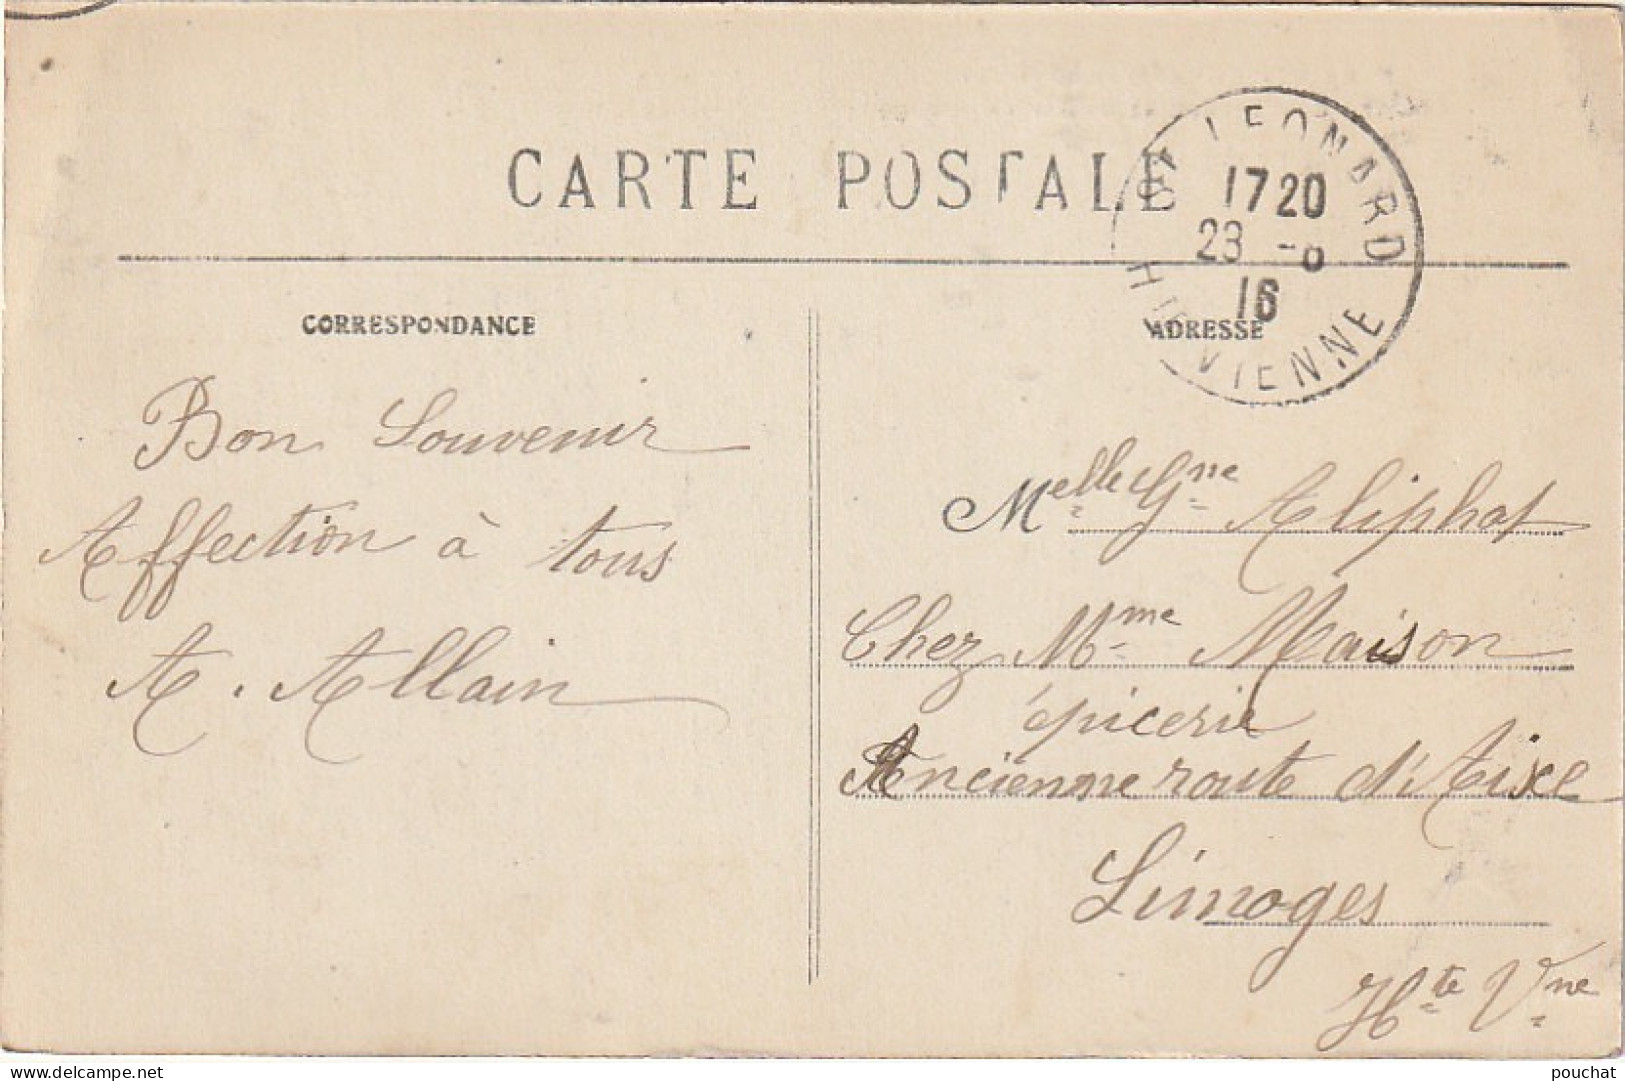 CARTE POSTALE
ST LEONARD
17 20
23 -8
16
HTE VIENNE
CORRESPONDANCE
ADRESSE
Bon Souvenir
Affection à tous
A. Allain
Melle Gne Aliphat
Chez Mme Maison
épicerie
Ancienne route d'Aixe
Limoges
Hte Vne
delcampe.net
pouchat